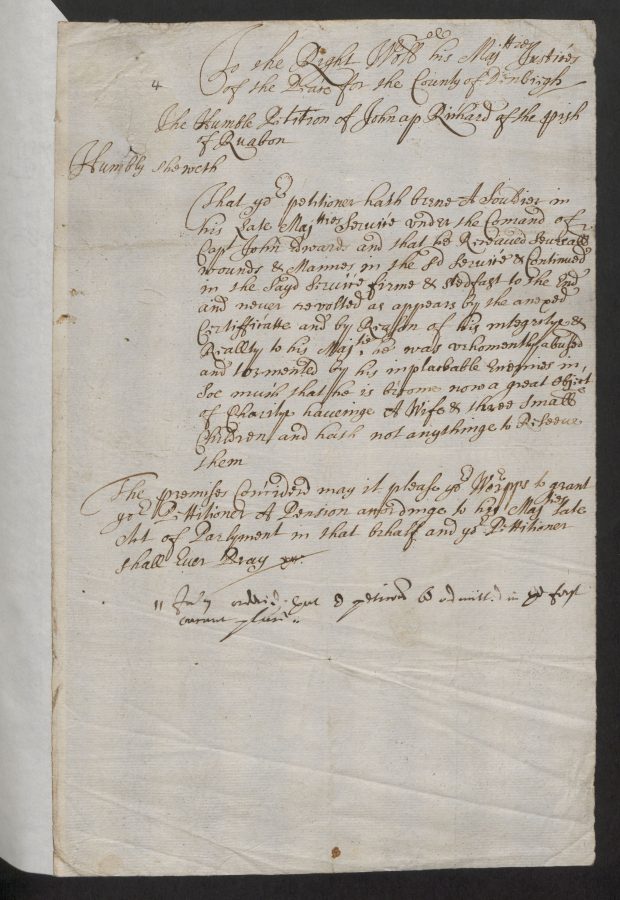 4
To the Right Worll his Majties Justices
of the Peace for the County of Denbigh
The Humble Petition of John ap Richard of the pish
of Ruabon
Humbly sheweth
That yor petitioner hath beene A Souldier in
his Late Majties Service vnder the Comand of
Capt John Edwards and that he Receaved severall
wounds & Maimes in the sd Service & Continued
in the sayd Service firme & stedfast to the End
and never revolted as appears by the anexed
Certifficatte and by Reason of his integrity &
Reallty to his Majtie he was vehomently abused
and tormented by his inplackable Enemies in
soe much that he is become now a great object
of Charity haveinge A Wife & three small
Children and hath not anythinge to Releeve
them
The premises Considerd may it please yor Worpps to grant
yor Pettitioner A Pension accordinge to his Majties late
Act of Parlyment in that behalf and yor Pettitioner
shall Ever Pray
ordered petitioner be admitted in ye first
place